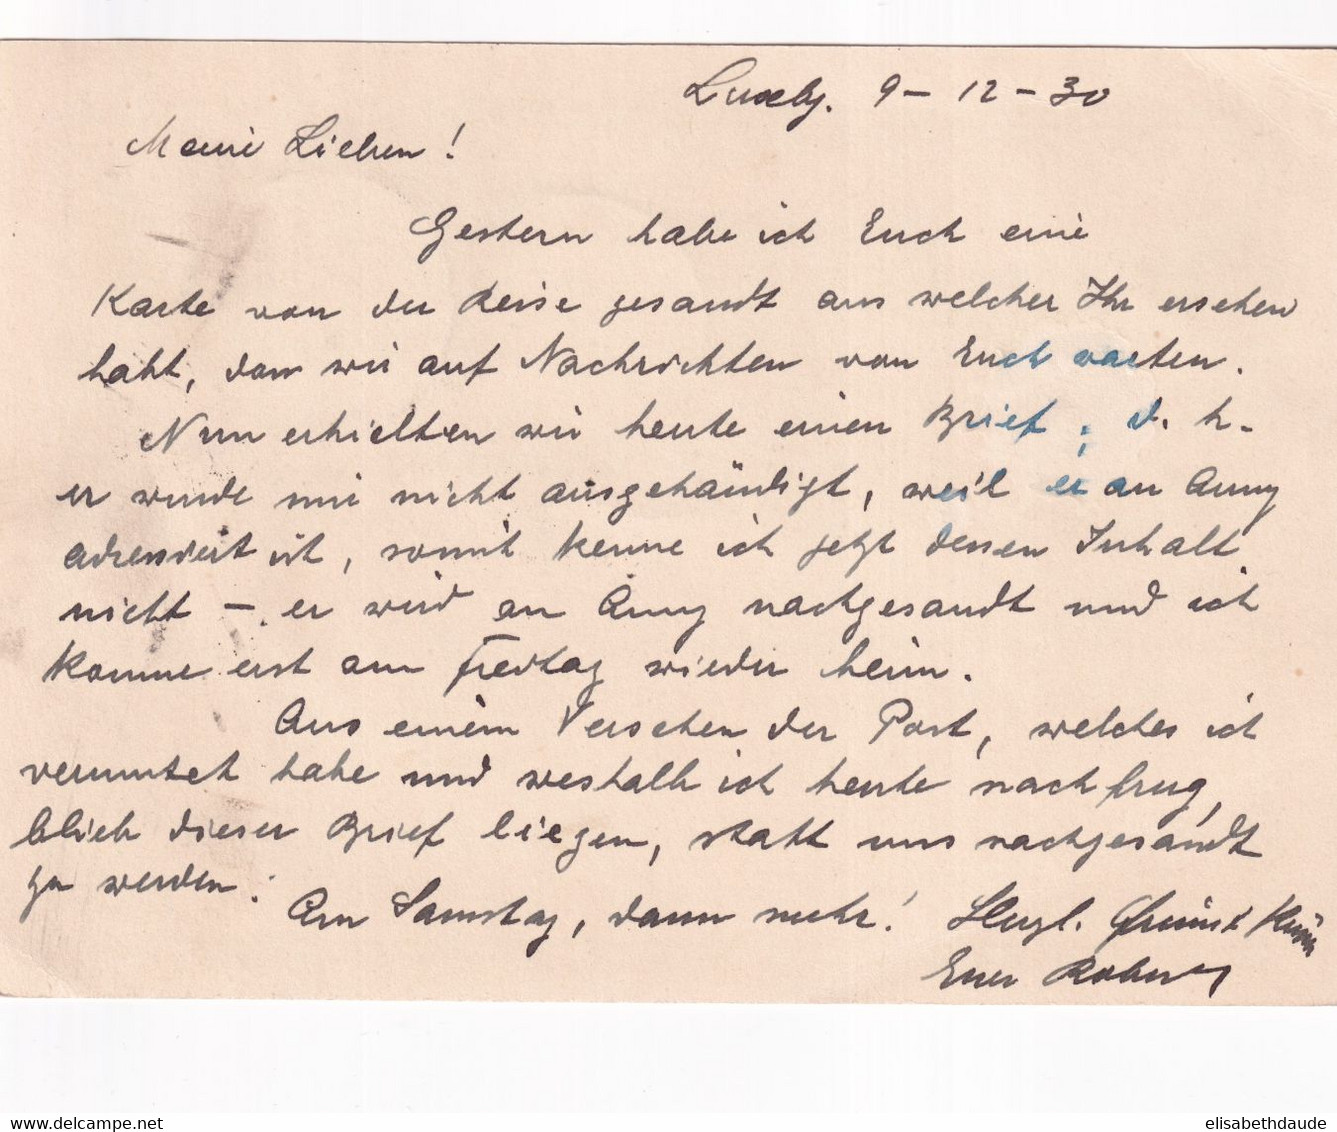 Luxbg. 9 - 12 - 30
Meine Lieben!
Gestern habe ich Euch eine
Karte von der Reise gesandt aus welcher Ihr ersehen
habt, dass wir auf Nachrichten von Euch warten.
Nun erhielten wir heute einen Brief, d. h.
er wurde mir nicht ausgehändigt, weil er an Anny
adressiert ist, somit kenne ich jetzt dessen Inhalt
nicht - er wird an Anny nachgesandt und ich
komme erst am Freitag wieder heim.
Aus einem Versehen der Post, welches ich
vermutet habe und weshalb ich heute nachfrug,
blieb dieser Brief liegen, statt uns nachgesandt
zu werden.
Am Samstag, dann mehr! Herzl. Grüsse
Euer
elisabethdaude